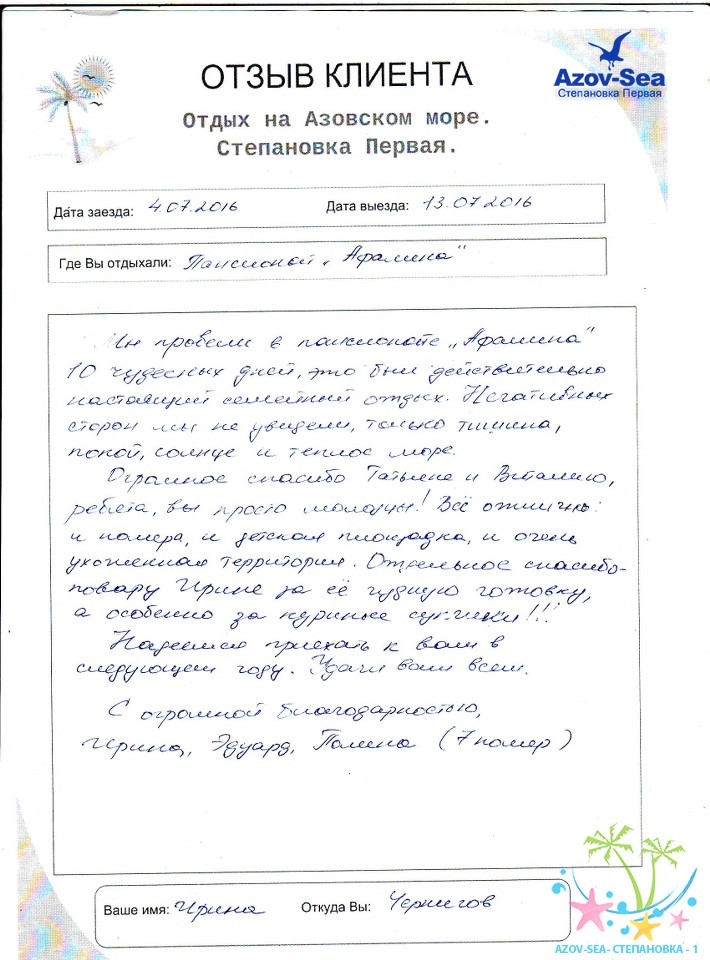 ОТЗЫВ КЛИЕНТА
Azov-Sea
Степановка Первая
Отдых на Азовском море.
Степановка Первая.
Дата заезда: 4.07.2016 Дата выезда: 13.07.2016
Где Вы отдыхали: Пансионат „Афалина"
Мы провели в пансионате „Афалина"
10 чудесных дней, это был действительно
настоящий семейный отдых. Негативных
сторон мы не увидели, только тишина,
покой, солнце и теплое море.
Огромное спасибо Татьяне и Виталию,
ребята, вы просто молодцы! Всё отлично:
и номера, и детская площадка, и очень
ухоженная территория. Отдельное спасибо
повару Ирине за её чудную готовку,
а особенно за куриные сук-ики!!!
Надеемся приехать к вам в
следующем году. Удачи вам всем.
С огромной благодарностью,
Ирина, Эдуард, Полина (7 номер)
Ваше имя: Ирина Откуда Вы: Чернигов
AZOV-SEA- СТЕПАНОВКА - 1